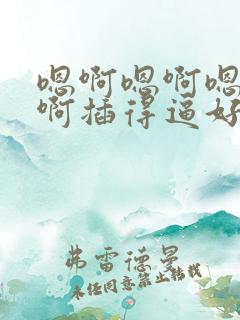 嗯啊嗯啊嗯
啊插得逼好
弗雷德曼
未经同意禁止转载